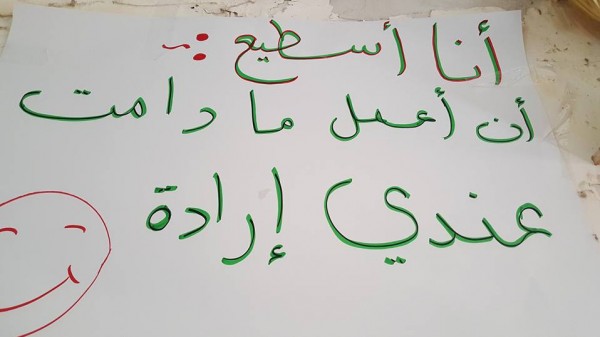 أنا أسطيع :~
أن أعمل ما دامت
عندي إرادة